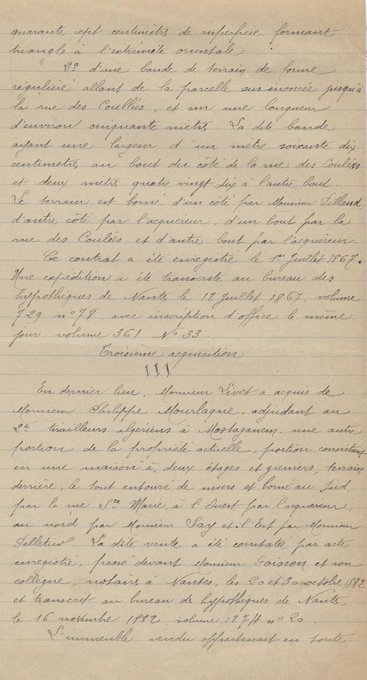 quarante sept centimètres de superficie formant
triangle à l'extrémité orientale.
2º d'une bande de terrain de forme
régulière allant de la parcelle susénoncée jusqu'à
la rue des Coulées, et sur une longueur
d'environ cinquante mètres. La dite bande
ayant une largeur d'un mètre soixante dix
centimètres au bout du côté de la rue des Coulées
et deux mètres quatre vingt dix à l'autre bout
Le terrain est borné d'un côté par Monsieur
d'autre côté par l'acquéreur, d'un bout par la
rue des Coulées et d'autre bout par l'acquéreur.
Ce contrat a été enregistré le 1er Juillet 1867.
Une expédition a été transcrite au bureau des
hypothèques de Nantes le 12 Juillet 1867, volume
729 nº 78 avec inscription d'office le même
jour volume 361 Nº 33
Troisième acquisition
En dernier lieu, Monsieur Livet a acquis de
Monsieur Philippe Mourlagne, adjudant au
2e tirailleurs algériens à Mostaganem, une autre
portion de la propriété actuelle, portion consistant
en une maison à deux étages et greniers, terrain
derrière, le tout entouré de murs et borné au Sud
par la rue Ste Marie, à l'Ouest par l'acquéreur
au nord par Monsieur Say et à l'Est par Monsieur
Pelletier. La dite vente a été constatée par acte
enregistré, passé devant Monsieur Foisson et son
collègue, notaires à Nantes, les 20 et 30 octobre 1882
et transcrit au bureau des hypothèques de Nantes,
le 16 novembre 1882, volume 1274 nº 20.
L'immeuble vendu appartenait en toute